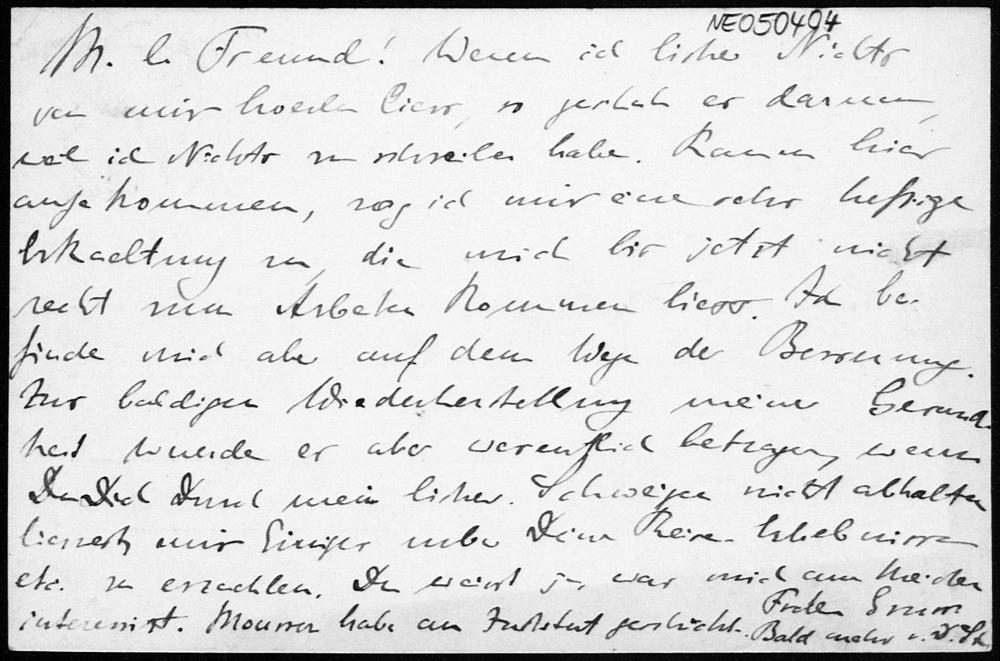 NE050494
M. l. Freund! Wenn ich bisher Nichts
von mir hoeren liess, so geschah es darum,
weil ich Nichts zu schreiben habe. Kaum hier
angekommen, zog ich mir eine sehr heftige
Erkaeltung zu, die mich bis jetzt nicht
recht zum Arbeiten kommen liess. Ich be-
finde mich aber auf dem Wege der Besserung.
Zur baldigen Wiederherstellung meiner Gesund-
heit wuerde es aber wesentlich betragen, wenn
Du Dich durch mein bisher. Schweigen nicht abhalten
liessest, mir Einiges ueber Deine Reise-Erlebnisse
etc. zu erzaehlen. Du weisst ja, was mich am Meisten
interessirt. habe an geschickt. Besten Gruss
Bald mehr v. D. St